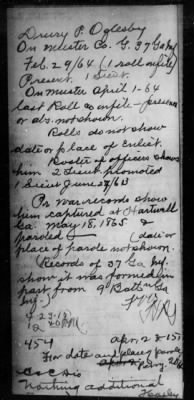 Drury P. Oglesby
On muster Co. G. 37 Ga Inf
Feb. 29/64 (1 roll on file)
Present. 1 Lieut.
On muster April 1-64
last Roll on file - presence
or abs. not shown.
Rolls do not show
date or place of enlist.
Roster of officers shows
him 2 Lieut. promoted
1 Lieut June 28/63
Ps. war records show
him captured at Hartwell
Ga. May 18, 1865 &
paroled (date or
place of parole not shown.
Records of 37 Ga. Inf.
show it was formed in
part from 9 Battn Ga
Inf.
454 Apr. 2 & 151
For date and place of parole
Nothing additional